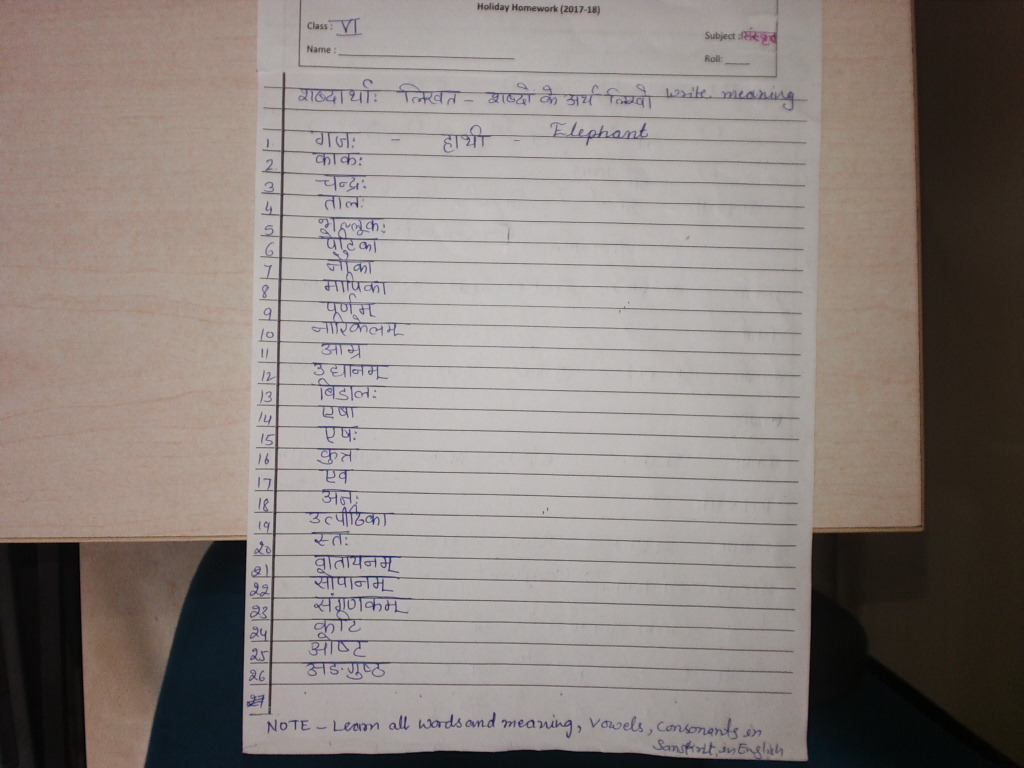 Holiday Homework (2017-18)
Class : VI
Subject : संस्कृत
Name :
Roll:
शब्दार्थाः लिखत - शब्दों के अर्थ लिखो write meaning
1 गजः - हाथी - Elephant
2 काकः
3 चन्द्रः
4 तालः
5 भल्लूकः
6 पेटिका
7 नौका
8 मापिका
9 पूर्णम्
10 नारिकेलम्
11 आम्र
12 उद्यानम्
13 बिडालः
14 एषा
15 एषः
16 कुत्र
17 एव
18
19 उत्पीठिका
20 स्तः
21 वातायनम्
22 सोपानम्
23 संगणकम्
24
25 ओष्ट
26 अङगुष्ठ
27
NOTE - Learn all words and meaning, Vowels, Consonants in
Sanskrit, in English